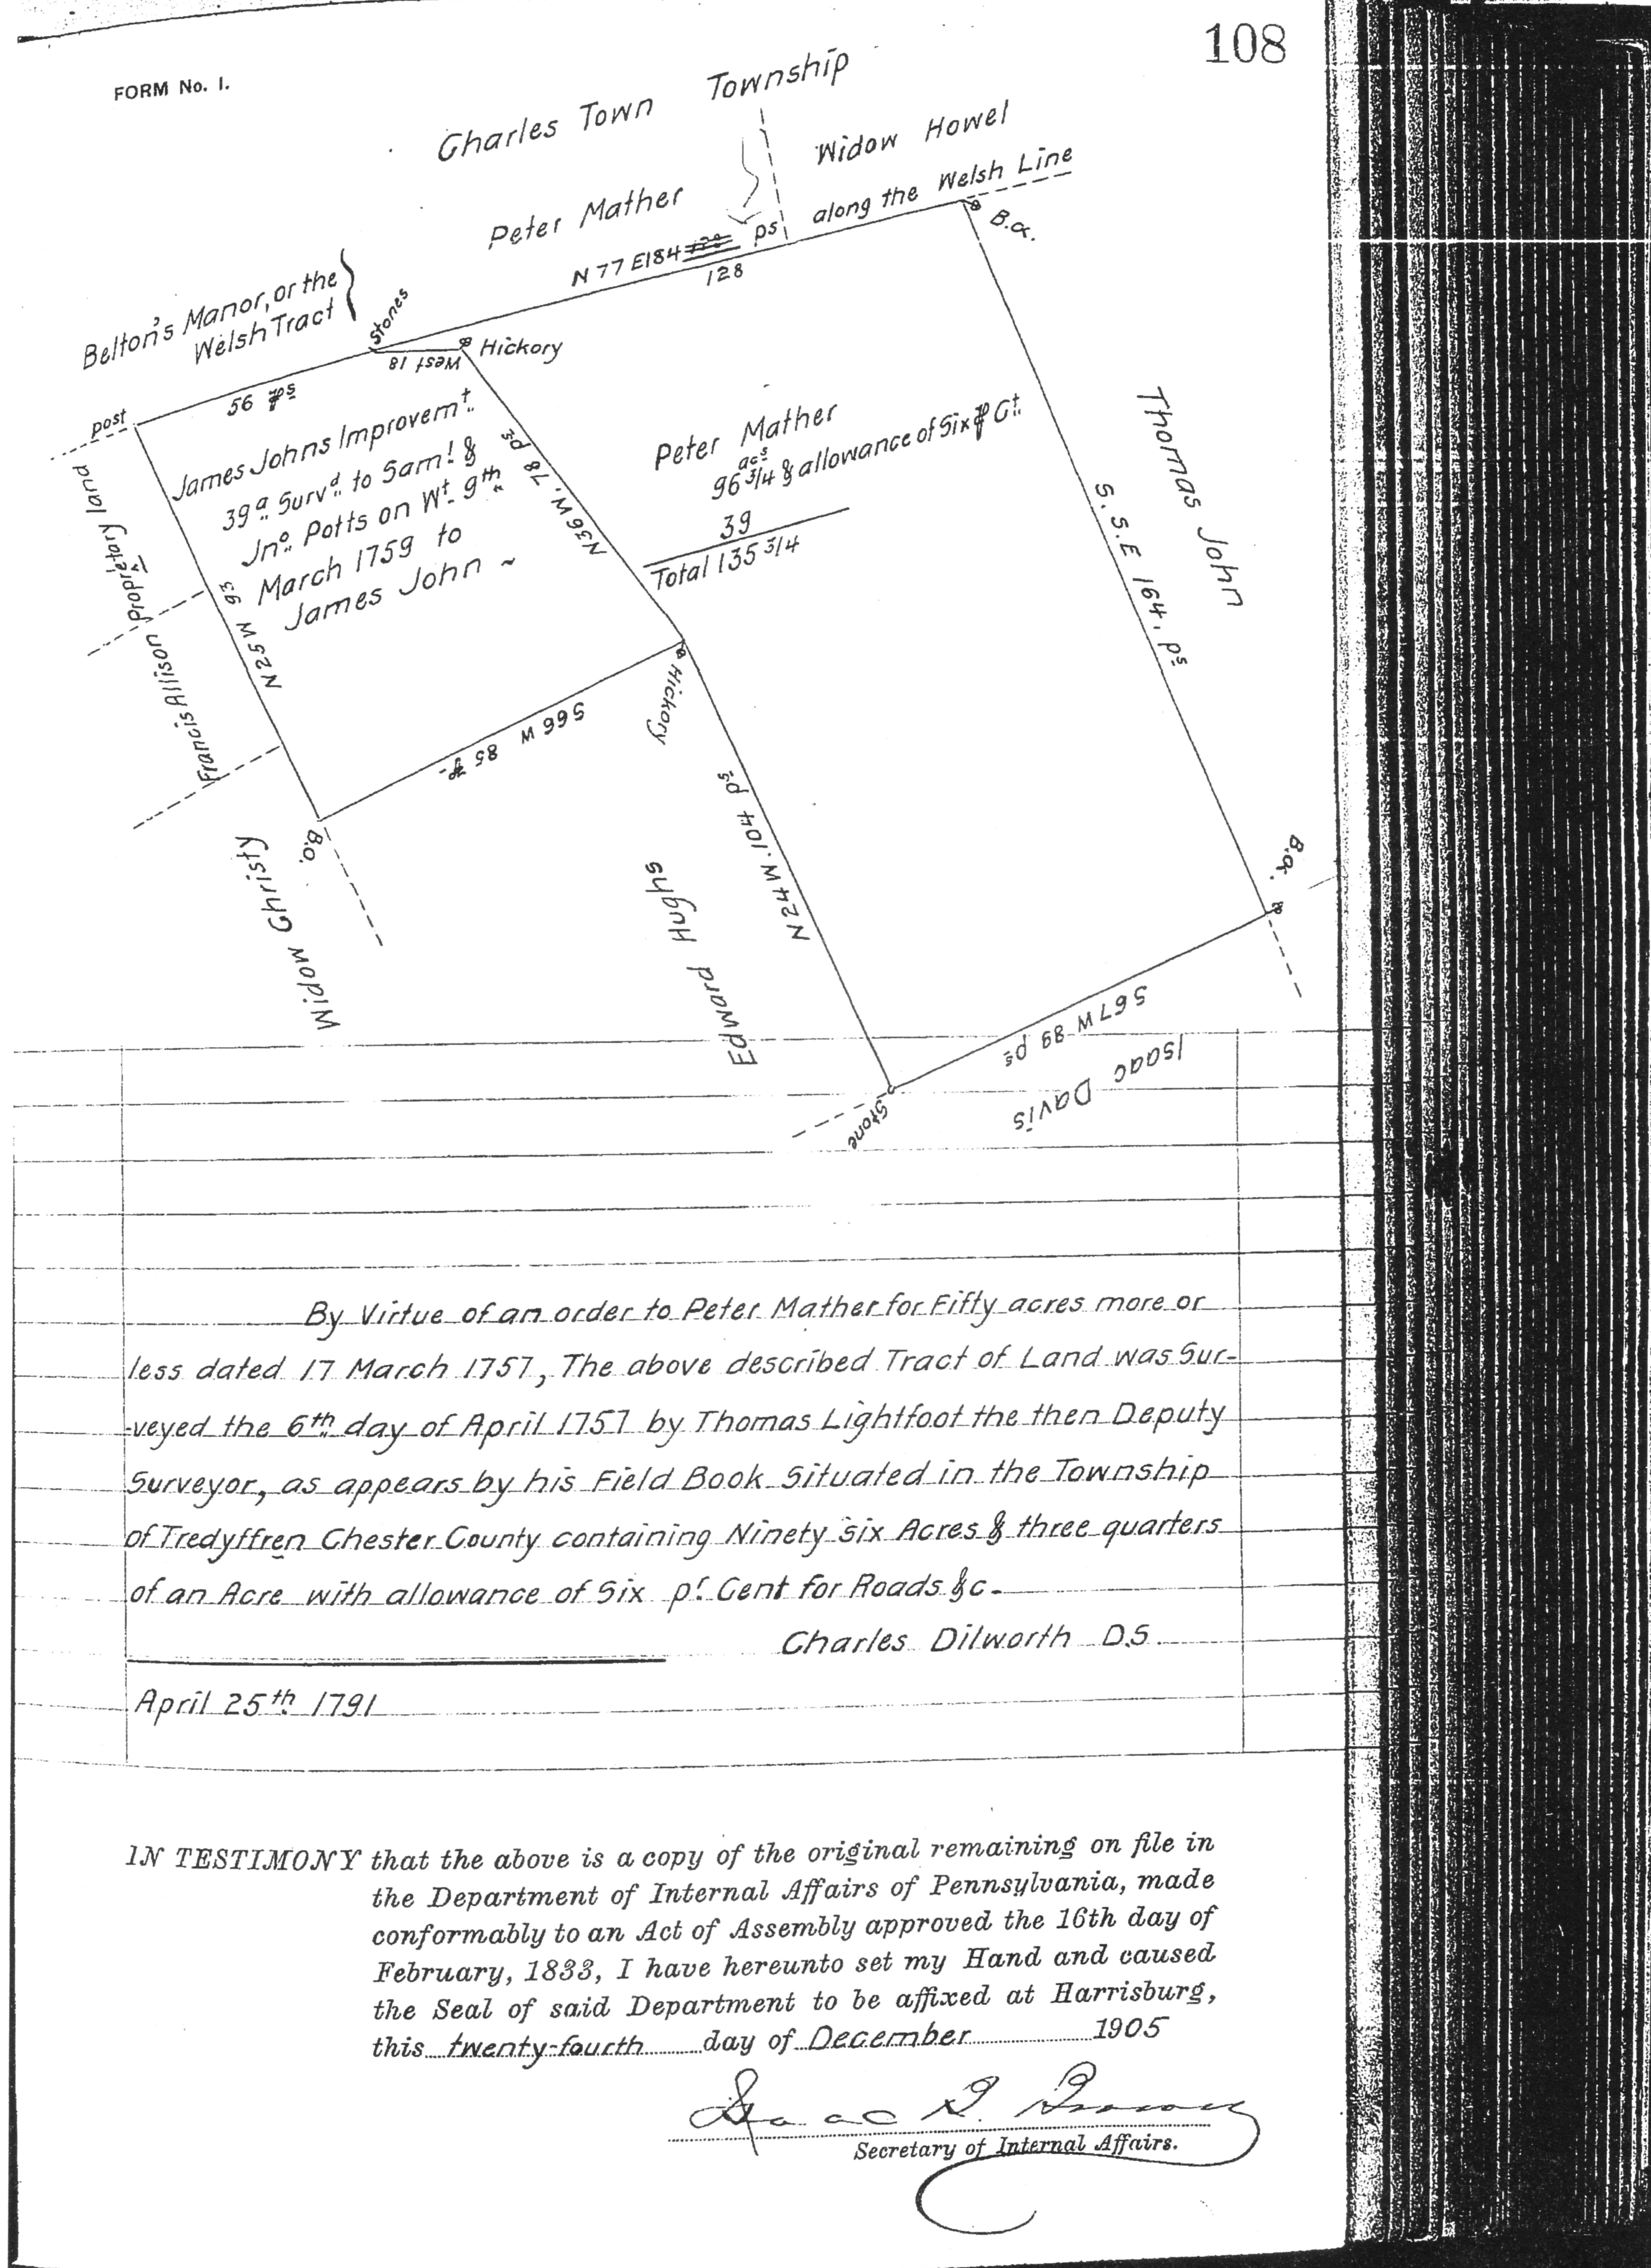 108
FORM No. 1.
Charles Town Township
Widow Howel
Peter Mather
along the Welsh Line
N 77 E 184 ps
128
B.o.
Belton's Manor, or the
Welsh Tract
Stones
West 18
Hickory
post
56 ps
James Johns Improvemt.
39a. Survd. to Saml. &
Jno. Potts on Wt. 9th
March 1759 to
James John ~
N36W. 78 ps
Peter Mather
acs
96 3/4 & allowance of Six p Ct.
39
Total 135 3/4
Thomas John
S. S. E 164. ps
Propretary land
Francis Allison
N25W 93
S66W 85 p
Hickory
B.o.
Widow Christy
Edward Hughs
N24W. 104 ps
B.o.
S67W 89 ps
Isaac Davis
Stone
By Virtue of an order to Peter Mather for Fifty acres more or
less dated 17 March 1757, The above described Tract of Land was Sur-
-veyed the 6th day of April 1757 by Thomas Lightfoot the then Deputy
Surveyor, as appears by his Field Book Situated in the Township
of Tredyffren Chester County containing Ninety Six Acres & three quarters
of an Acre with allowance of Six pr. Cent for Roads &c.
Charles Dilworth D.S.
April 25th 1791
IN TESTIMONY that the above is a copy of the original remaining on file in
the Department of Internal Affairs of Pennsylvania, made
conformably to an Act of Assembly approved the 16th day of
February, 1833, I have hereunto set my Hand and caused
the Seal of said Department to be affixed at Harrisburg,
this twenty-fourth day of December 1905
Isaac B. Brown
Secretary of Internal Affairs.